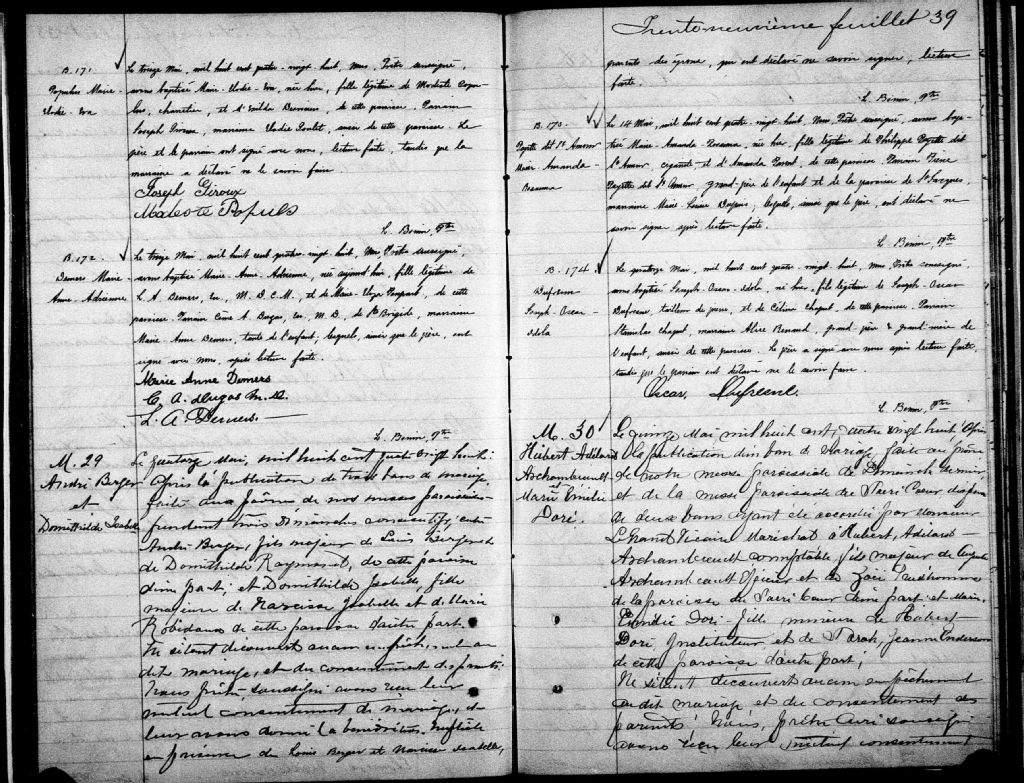 B. 171.
Populus Marie-
Elodie-Eva
Le treize Mai, mil huit cent quatre-vingt huit, Nous, Prêtre soussigné,
avons baptisé Marie-Elodie-Eva, née hier, fille légitime de Modeste Popu-
lus, charretier, et d'Exilda Demers, de cette paroisse. Parrain
Joseph Giroux, marraine Elodie Poulet, aussi de cette paroisse. Le
père et le parrain ont signé avec nous, lecture faite, tandis que la
marraine a déclaré ne le savoir faire.
Joseph Giroux
Modeste Populus
L. Bonin, Ptre
B. 172.
Demers Marie
Anne-Adrienne
Le treize Mai, mil huit cent quatre-vingt huit, Nous Prêtre soussigné,
avons baptisé Marie-Anne-Adrienne, née aujourd'hui, fille légitime de
L. A. Demers, Ecr, M.D.C.M., et de Marie-Eliza, de cette
paroisse. Parrain A. Dugas, Ecr, M.D., de Ste Brigide, marraine
Marie-Anne Demers, tante de l'enfant, lesquels, ainsi que le père, ont
signé avec nous, après lecture faite.
Marie Anne Demers
C. A. Dugas M.D.
L. A. Demers
L. Bonin, Ptre
M. 29
André Berger
et
Domithilde Isabelle
Le quatorze Mai, mil huit cent quatre vingt huit.
Après la publication de trois bans de mariage
faite aux prônes de nos messes paroissiales
pendant trois Dimanches consécutifs, entre
André Berger, fils majeur de Louis Berger et
de Domithilde Raymond, de cette paroisse
d'une part; et Domithilde Isabelle, fille
majeure de Narcisse Isabelle et de Marie
Robidoux de cette paroisse d'autre part.
Ne s'étant découvert aucun empêchement au
dit mariage, et du consentement des parents;
Nous prêtre soussigné avons reçu leur
mutuel consentement de mariage, et
leur avons donné la bénédiction nuptiale
en présence de Louis Berger et Narcisse Isabelle,
Trente-neuvième feuillet 39
parents des époux, qui ont déclaré ne savoir signer, lecture
faite.
L. Bonin, Ptre
B. 173.
Payette dit St Amour
Marie Amanda-
Rosanna
Le 14 Mai, mil huit cent quatre-vingt huit, Nous Prêtre soussigné, avons bap-
tisé Marie-Amanda-Rosanna, née hier, fille légitime de Philippe Payette dit
St Amour, et d'Amanda, de cette paroisse. Parrain Pierre
Payette dit St Amour, grand-père de l'enfant et de la paroisse de St Jacques,
marraine Marie-Louise Dupuis, lesquels, ainsi que le père, ont déclaré ne
savoir signer après lecture faite.
L. Bonin, Ptre
B. 174
Dufresne
Joseph-Oscar-
Idola
Le quatorze Mai, mil huit cent quatre-vingt huit, Nous Prêtre soussigné,
avons baptisé Joseph-Oscar-Idola, né hier, fils légitime de Joseph-Oscar
Dufresne, tailleur de pierre, et de Célina Chaput, de cette paroisse. Parrain
Stanislas Chaput, marraine Renaud, grand-père & grand-mère de
l'enfant, aussi de cette paroisse. Le père a signé avec nous après lecture faite,
tandis que le parrain ont déclaré ne le savoir faire.
Oscar Dufresne.
L. Bonin, Ptre
M. 30
Hubert Adélard
Archambeault
et
Marie Emélie
Doré.
Le quinze Mai mil huit cent quatre vingt huit, Après
la publication d'un ban de Mariage faite au prône
de notre messe paroissiale de Dimanche dernier
et de la messe paroissiale du Sacré Coeur dispense
de deux bans ayant été accordée par Monsieur
Le Grand Vicaire Maréchal à Hubert, Adélard
Archambeault comptable, fils majeur de
Archambeault et de Zoé Prudhomme
de la paroisse du Sacré Coeur d'une part et Marie
Emélie Doré fille mineure de Hubert
Doré, Instituteur, et de Sarah, Jeanne Anderson
de cette paroisse d'autre part;
Ne s'étant découvert aucun empêchement
au dit mariage et du consentement des
parents Nous, prêtre Curé soussigné
avons reçu leur mutuel consentement